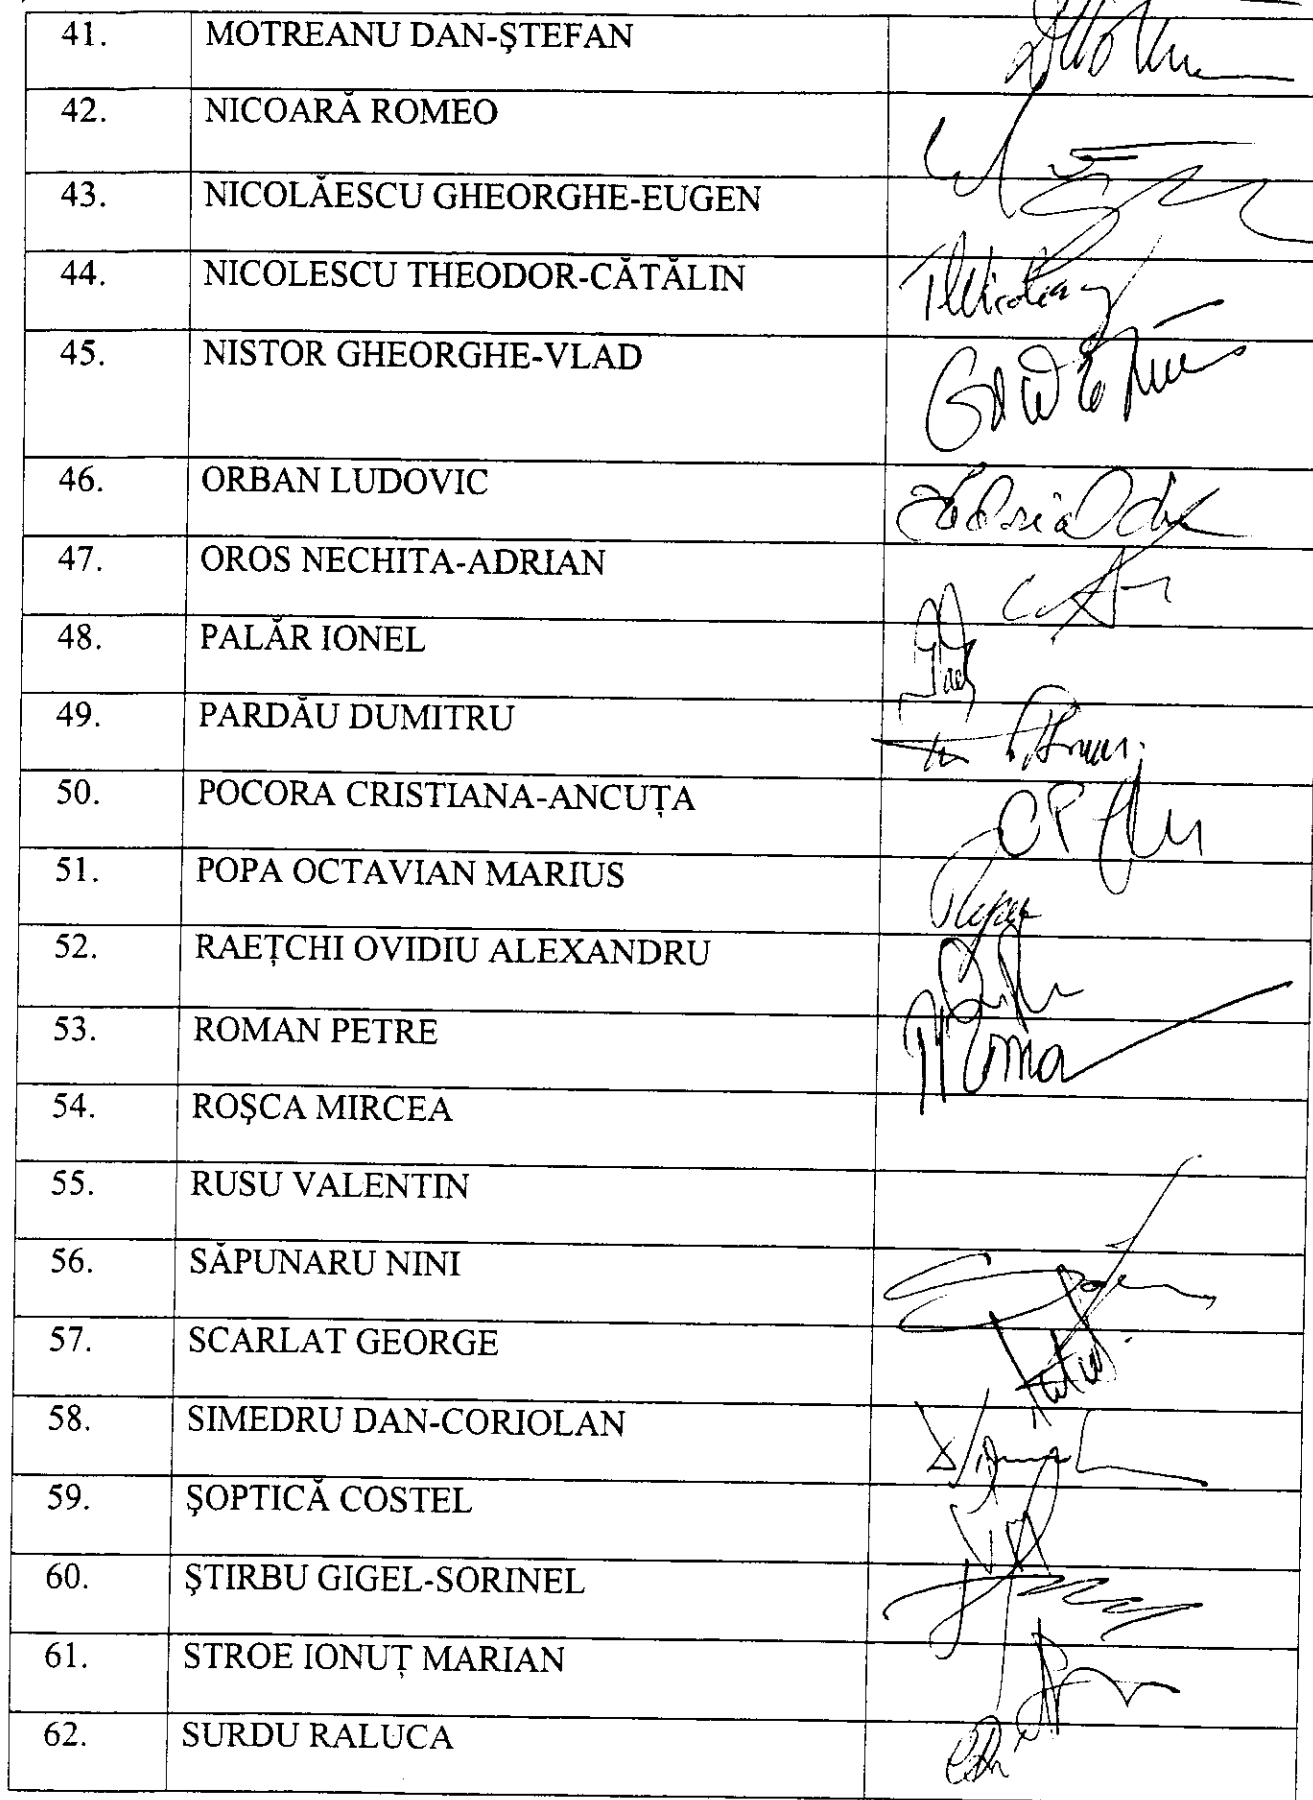 41. MOTREANU DAN-ŞTEFAN
42. NICOARĂ ROMEO
43. NICOLĂESCU GHEORGHE-EUGEN
44. NICOLESCU THEODOR-CĂTĂLIN
45. NISTOR GHEORGHE-VLAD
46. ORBAN LUDOVIC
47. OROS NECHITA-ADRIAN
48. PALĂR IONEL
49. PARDĂU DUMITRU
50. POCORA CRISTIANA-ANCUȚA
51. POPA OCTAVIAN MARIUS
52. RAEȚCHI OVIDIU ALEXANDRU
53. ROMAN PETRE
54. ROŞCA MIRCEA
55. RUSU VALENTIN
56. SĂPUNARU NINI
57. SCARLAT GEORGE
58. SIMEDRU DAN-CORIOLAN
59. ŞOPTICĂ COSTEL
60. ŞTIRBU GIGEL-SORINEL
61. STROE IONUȚ MARIAN
62. SURDU RALUCA